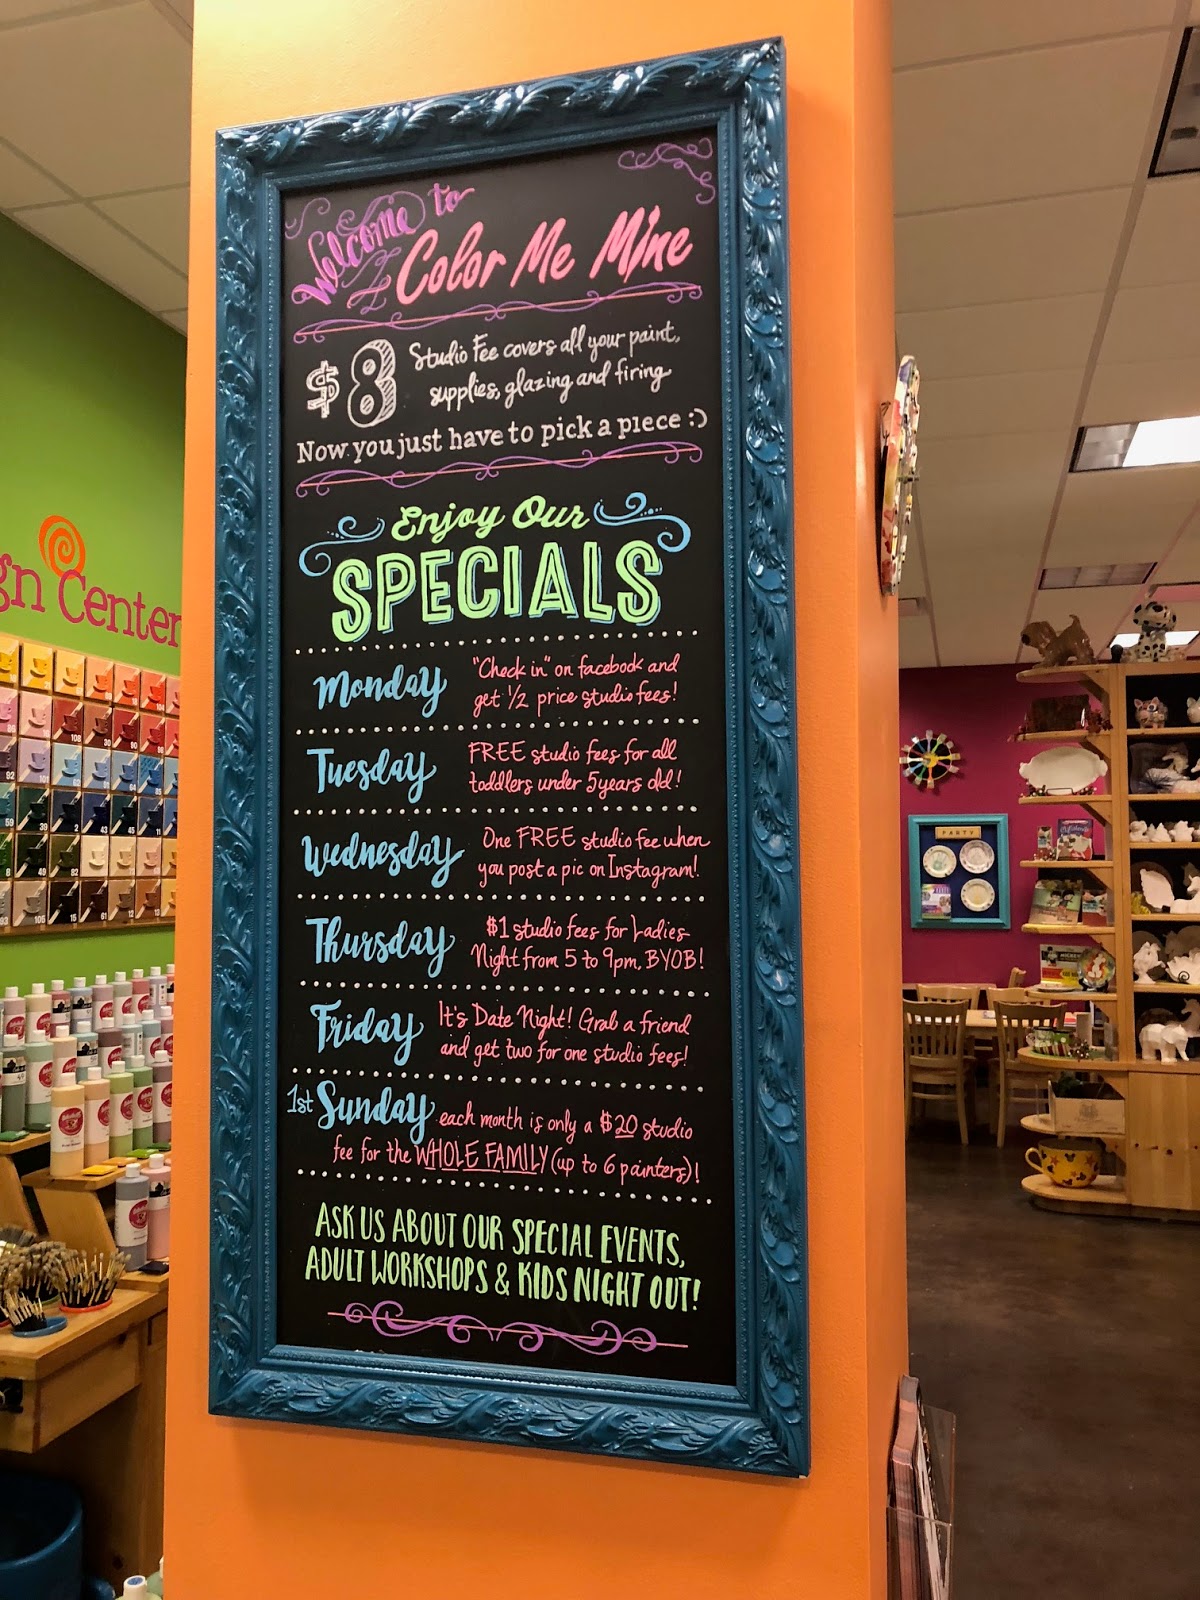 Welcome to
Color Me Mine
$8 Studio Fee covers all your paint,
supplies, glazing and firing
Now you just have to pick a piece :)
Enjoy Our
SPECIALS
Monday "Check in" on facebook and
get 1/2 price studio fees!
Tuesday FREE studio fees for all
toddlers under 5 years old!
Wednesday One FREE studio fee when
you post a pic on Instagram!
Thursday $1 studio fees for Ladies
Night from 5 to 9pm, BYOB!
Friday It's Date Night! Grab a friend
and get two for one studio fees!
1st Sunday each month is only a $20 studio
fee for the WHOLE FAMILY (up to 6 painters)!
ASK US ABOUT OUR SPECIAL EVENTS,
ADULT WORKSHOPS & KIDS NIGHT OUT!
gn Center
PARTY